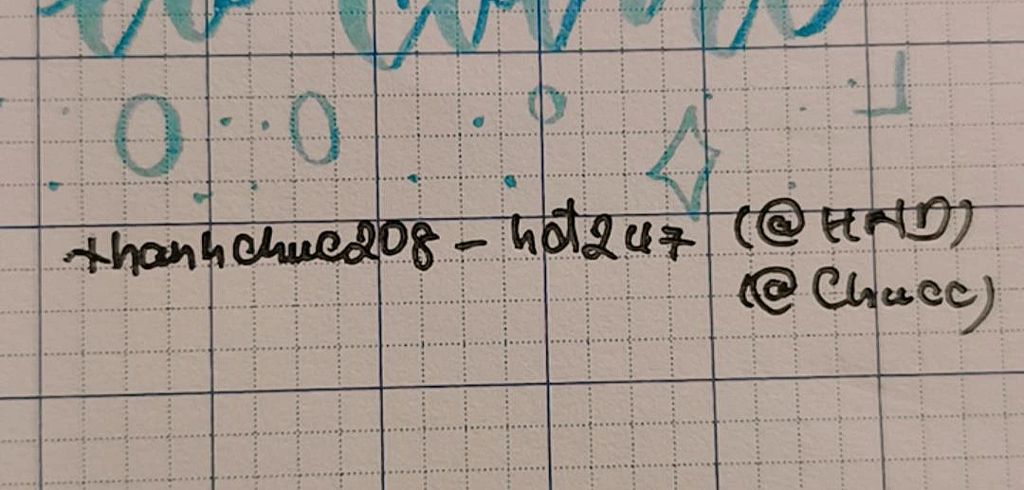 thanhchuc208 - hđ247 (@HND)
(@Chucc)